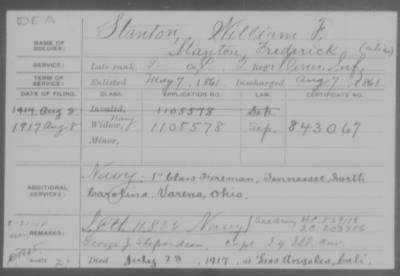 DEA
NAME OF SOLDIER:
Stanton, William F.
Stanton, Frederick (alias)
SERVICE:
Late rank, Co. 2 Reg't Conn. Inf.
TERM OF SERVICE:
Enlisted May 7, 1861. Discharged Aug 7, 1861.
DATE OF FILING. CLASS. APPLICATION NO. LAW. CERTIFICATE NO.
1917 Aug 8 Invalid, 1108578
1917 Aug 8 Widow, Navy 1108578 843067
Minor,
ADDITIONAL SERVICES:
Navy. 1" Class Fireman, Tennessee, North
Carolina, Varena, Ohio.
REMARKS:
11836 Navy
George J. Stephenson, Capt. Ill.
Died July 28, 1917, at Los Angeles, Cali.